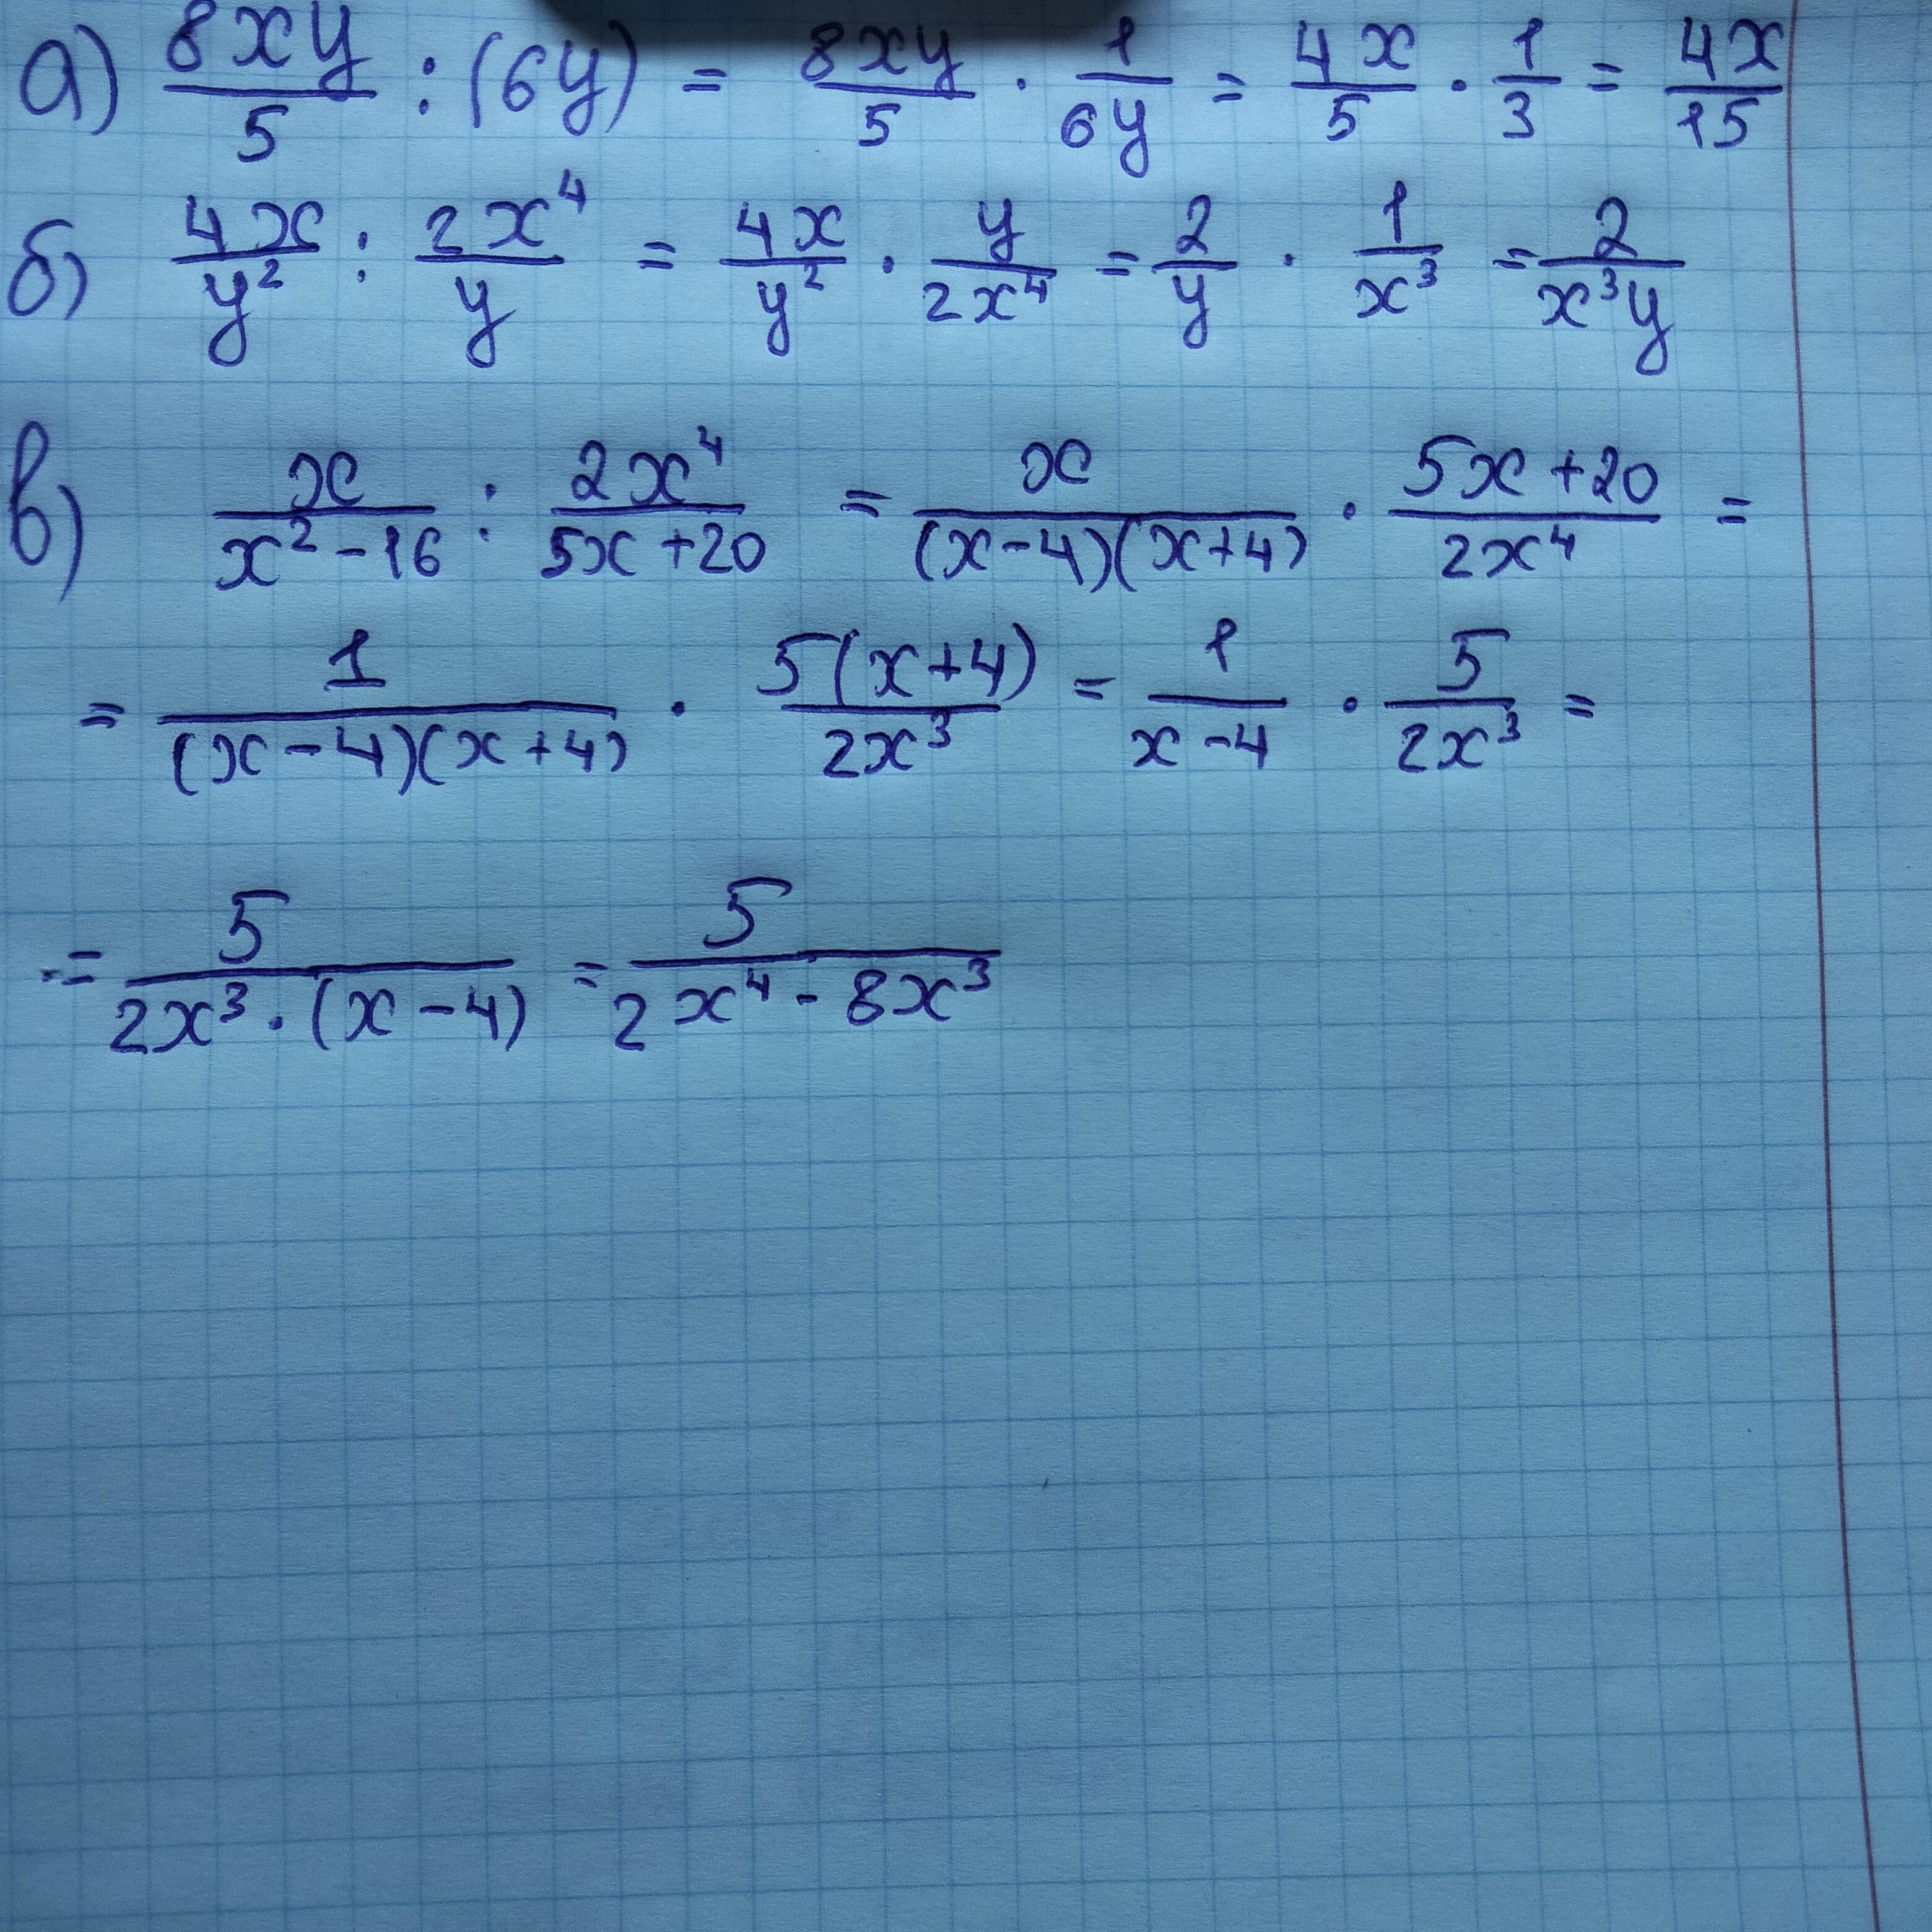 а) 8xy/5 : (6y) = 8xy/5 · 1/6y = 4x/5 · 1/3 = 4x/15
б) 4x/y² : 2x⁴/y = 4x/y² · y/2x⁴ = 2/y · 1/x³ = 2/x³y
в) x/x²-16 : 2x⁴/5x+20 = x/(x-4)(x+4) · 5x+20/2x⁴ =
= 1/(x-4)(x+4) · 5(x+4)/2x³ = 1/x-4 · 5/2x³ =
= 5/2x³·(x-4) = 5/2x⁴-8x³